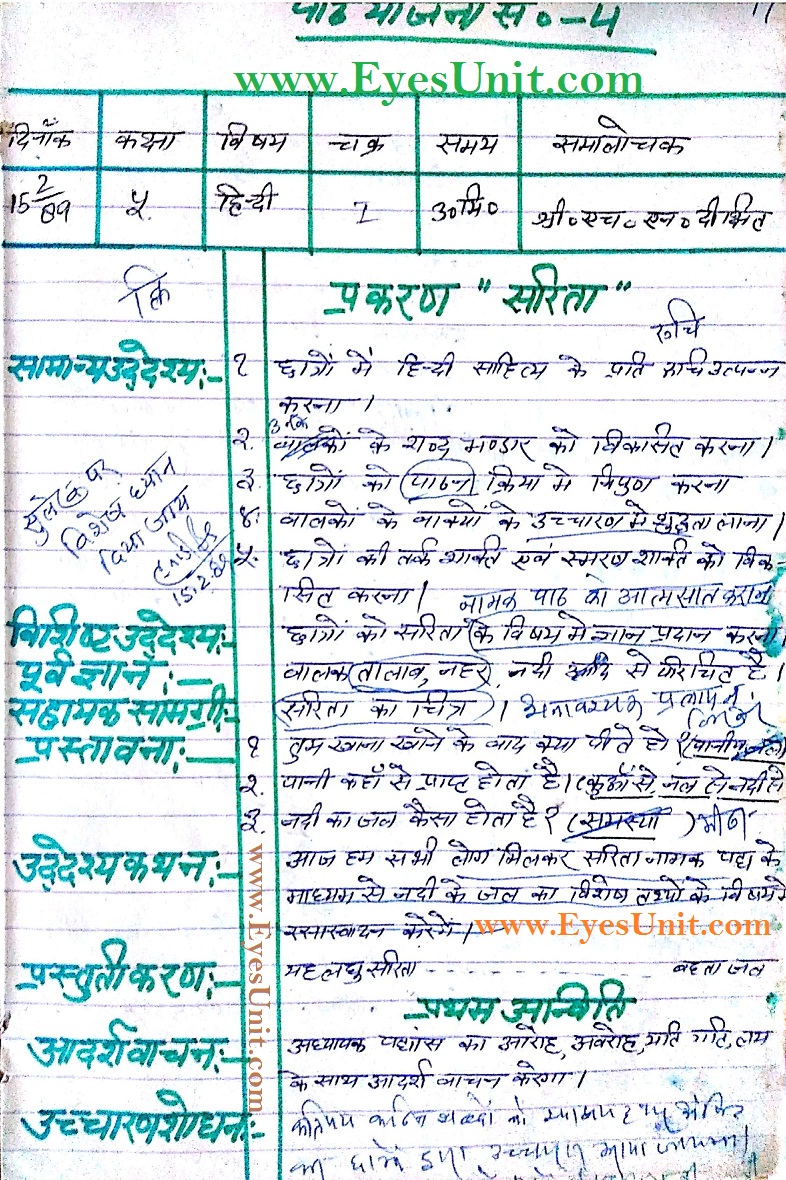 पाठ योजना सं०-५
11
www.EyesUnit.com
दिनाँक कक्षा विषय चक्र समय समालोचक
15 2/89 ५ हिन्दी I ३० मि० श्री० एच० एन० दीक्षित
प्रकरण "सरिता"
रुचि
सामान्य उद्देश्य:- १ छात्रों में हिन्दी साहित्य के प्रति रुचि उत्पन्न
करना।
२. बालकों के शब्द भण्डार को विकसित करना।
३. छात्रों को पाठन क्रिया में निपुण करना
४. बालकों के वाक्यों के उच्चारण मे शुद्धता लाना।
५. छात्रों की तर्क शक्ति एवं स्मरण शक्ति को विक-
सित करना।
सुलेख पर
विशेष ध्यान
दिया जाय
15.2.89
नामक पाठ को आत्मसात कराना
विशिष्ट उद्देश्य:- छात्रों को सरिता के विषय मे ज्ञान प्रदान करना।
पूर्व ज्ञान:- बालक तालाब, नहर, नदी आदि से परिचित है।
सहायक सामग्री:- सरिता का चित्र।
प्रस्तावना:- १ तुम खाना खाने के बाद क्या पीते हो?
२. पानी कहाँ से प्राप्त होता है। (कुआँ से, नल से नदी से
३. नदी का जल कैसा होता है? (समस्या) मीठा
उद्देश्य कथन:- आज हम सभी लोग मिलकर सरिता नामक पद्य के
माध्यम से नदी के जल का विशेष तथ्यों के विषय मे
रसास्वादन करेगें।
www.EyesUnit.com
www.EyesUnit.com
प्रस्तुतीकरण:- यह लघु सरिता ---------- बहता जल
प्रथम अन्विति
आदर्श वाचन:- अध्यापक पद्यांस का आरोह, अवरोह, यति गति, लय
के साथ आदर्श वाचन करेगा।
उच्चारण शोधन:- कतिपय कठिन शब्दों को श्यामपट पर